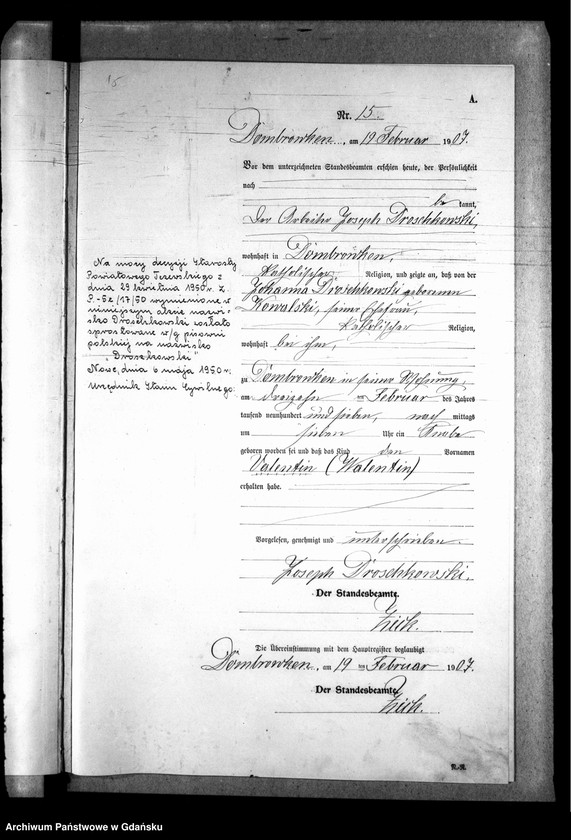 15
A.
Nr. 15.
Dombrowken, am 19 Februar 1907.
Vor dem unterzeichneten Standesbeamten erschien heute, der Persönlichkeit
nach
be kannt,
Der Arbeiter Joseph Droschkowski,
wohnhaft in Dombrowken,
katholischer Religion, und zeigte an, daß von der
Johanna Droschkowski geborenen
Kowalski, seiner Ehefrau,
katholischer Religion,
wohnhaft bei ihm,
zu Dombrowken in seiner Wohnung,
am dreizehn ten Februar des Jahres
tausend neunhundert und sieben, nach mittags
um sieben Uhr ein Knabe
geboren worden sei und daß das Kind den Vornamen
Valentin (Walentin)
erhalten habe.
Vorgelesen, genehmigt und unterschrieben.
Joseph Droschkowski.
Der Standesbeamte.
Die Übereinstimmung mit dem Hauptregister beglaubigt
Dombrowken, am 19 ten Februar 1907.
Der Standesbeamte.
Na mocy decyzji Starosty
Powiatowego Tczewskiego z
dnia 29 kwietnia 1950 r. L.
wymienione w
niniejszym akcie nazwi-
sko Droschkowski zostało
sprostowane w/g pisowni
polskiej na nazwisko
"Droszkowski"
Nowe, dnia 6 maja 1950 r.
Urzędnik Stanu Cywilnego:
Archiwum Państwowe w Gdańsku